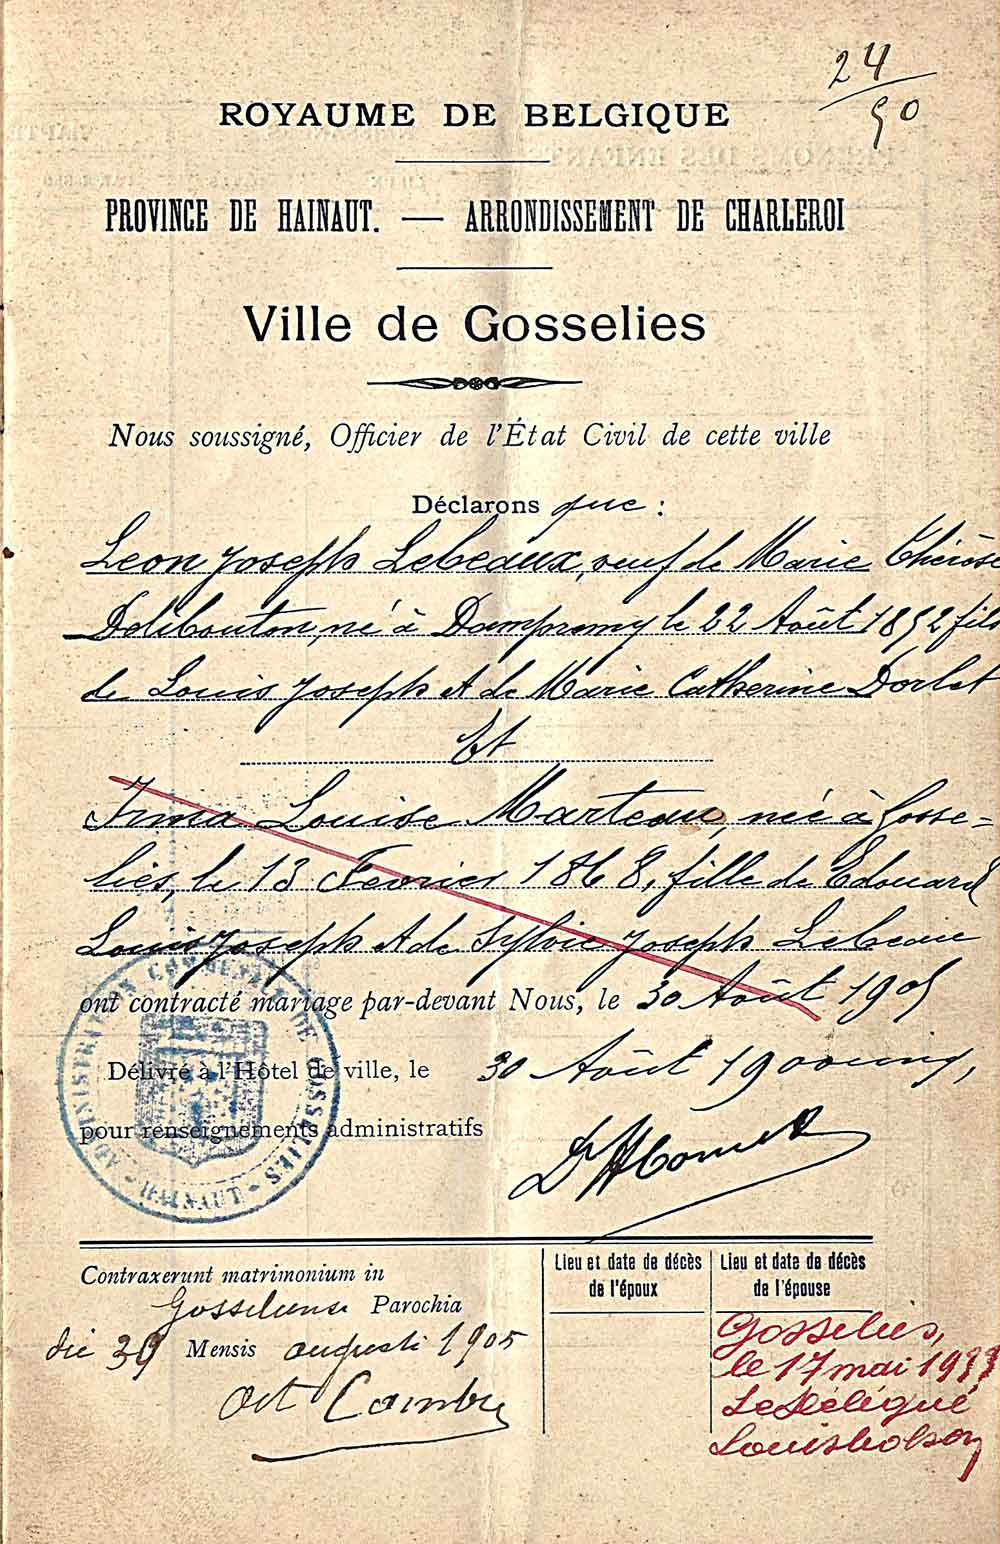 24
50
ROYAUME DE BELGIQUE
PROVINCE DE HAINAUT. — ARRONDISSEMENT DE CHARLEROI
Ville de Gosselies
Nous soussigné, Officier de l'État Civil de cette ville
Déclarons que :
Leon Joseph Lebeaux, veuf de Marie Thérèse
Delibouton, né à Dampremy le 22 Août 1852 fils
de Louis Joseph et de Marie Catherine Dorlet
Et
Irma Louise Marteau, née à Gosse=
lies, le 13 Fevrier 1868, fille de Edouard
Louis Joseph et de Sylvie Joseph Lebeau
ont contracté mariage par-devant Nous, le 30 Août 1905
Délivré à l'Hôtel de ville, le 30 Août 1900cinq,
pour renseignements administratifs
ADMINISTRATION COMMUNALE DE GOSSELIES
- HAINAUT -
Contraxerunt matrimonium in
Parochia
die 30 Mensis augusti 1905
Lieu et date de décès
de l'époux
Lieu et date de décès
de l'épouse
Gosselies,
le 17 mai 1933
Le Délégué